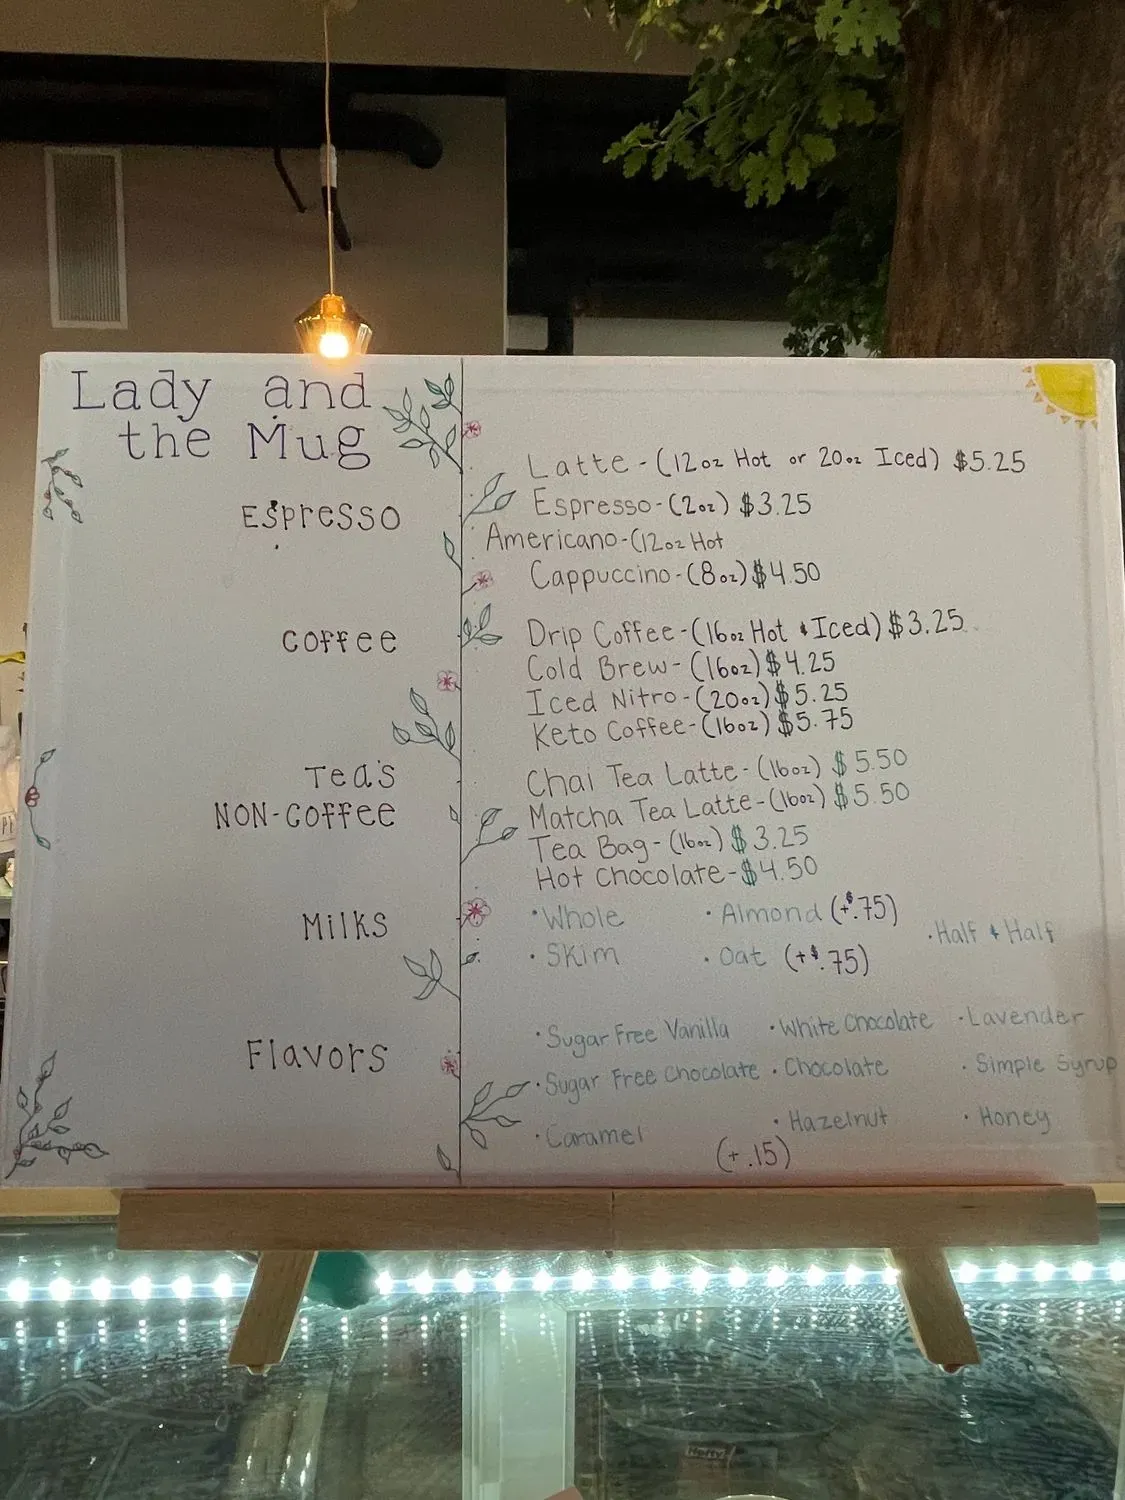 Lady and
the Mug
Espresso
Latte - (12oz Hot or 20oz Iced) $5.25
Espresso - (2oz) $3.25
Americano - (12oz Hot
Cappuccino - (8oz) $4.50
Coffee
Drip Coffee - (16oz Hot & Iced) $3.25
Cold Brew - (16oz) $4.25
Iced Nitro - (20oz) $5.25
Keto Coffee - (16oz) $5.75
Tea's
NON-Coffee
Chai Tea Latte - (16oz) $5.50
Matcha Tea Latte - (16oz) $5.50
Tea Bag - (16oz) $3.25
Hot Chocolate - $4.50
Milks
• Whole • Almond (+$.75) • Half & Half
• Skim • Oat (+$.75)
Flavors
• Sugar Free Vanilla • White Chocolate • Lavender
• Sugar Free Chocolate • Chocolate • Simple Syrup
• Caramel • Hazelnut • Honey
(+ .15)